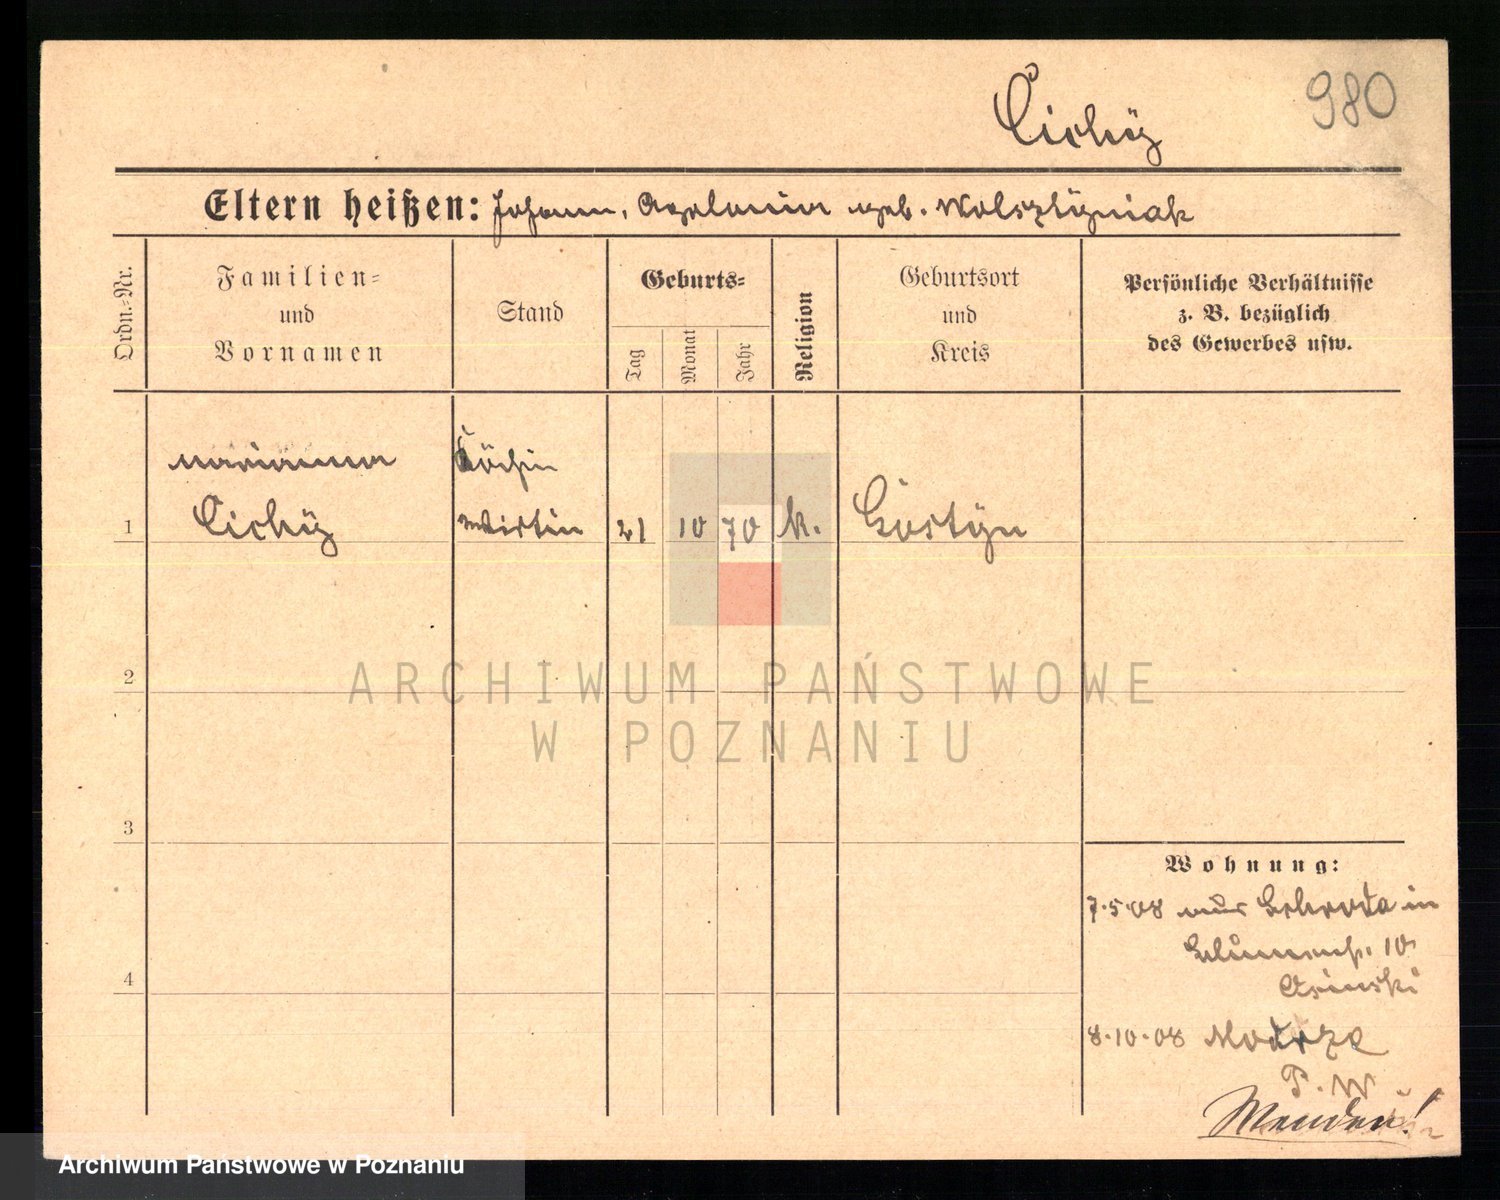 980
Cichÿ
Eltern heißen: Johann, Apolonia geb. Wolsztÿniak
Ordn.-Nr.
Familien-
und
Vornamen
Stand
Geburts-
Tag
Monat
Jahr
Religion
Geburtsort
und
Kreis
Persönliche Verhältnisse
z. B. bezüglich
des Gewerbes usw.
Marianna
Köchin
1
Cichÿ
Wirtin
21
10
70
k.
Gostÿn
ARCHIWUM PAŃSTWOWE
2
W POZNANIU
3
Wohnung:
7.5.08 aus Schroda in
Blumenst. 10
4
Asinski
8.10.08
P. W
Wenden!
Archiwum Państwowe w Poznaniu